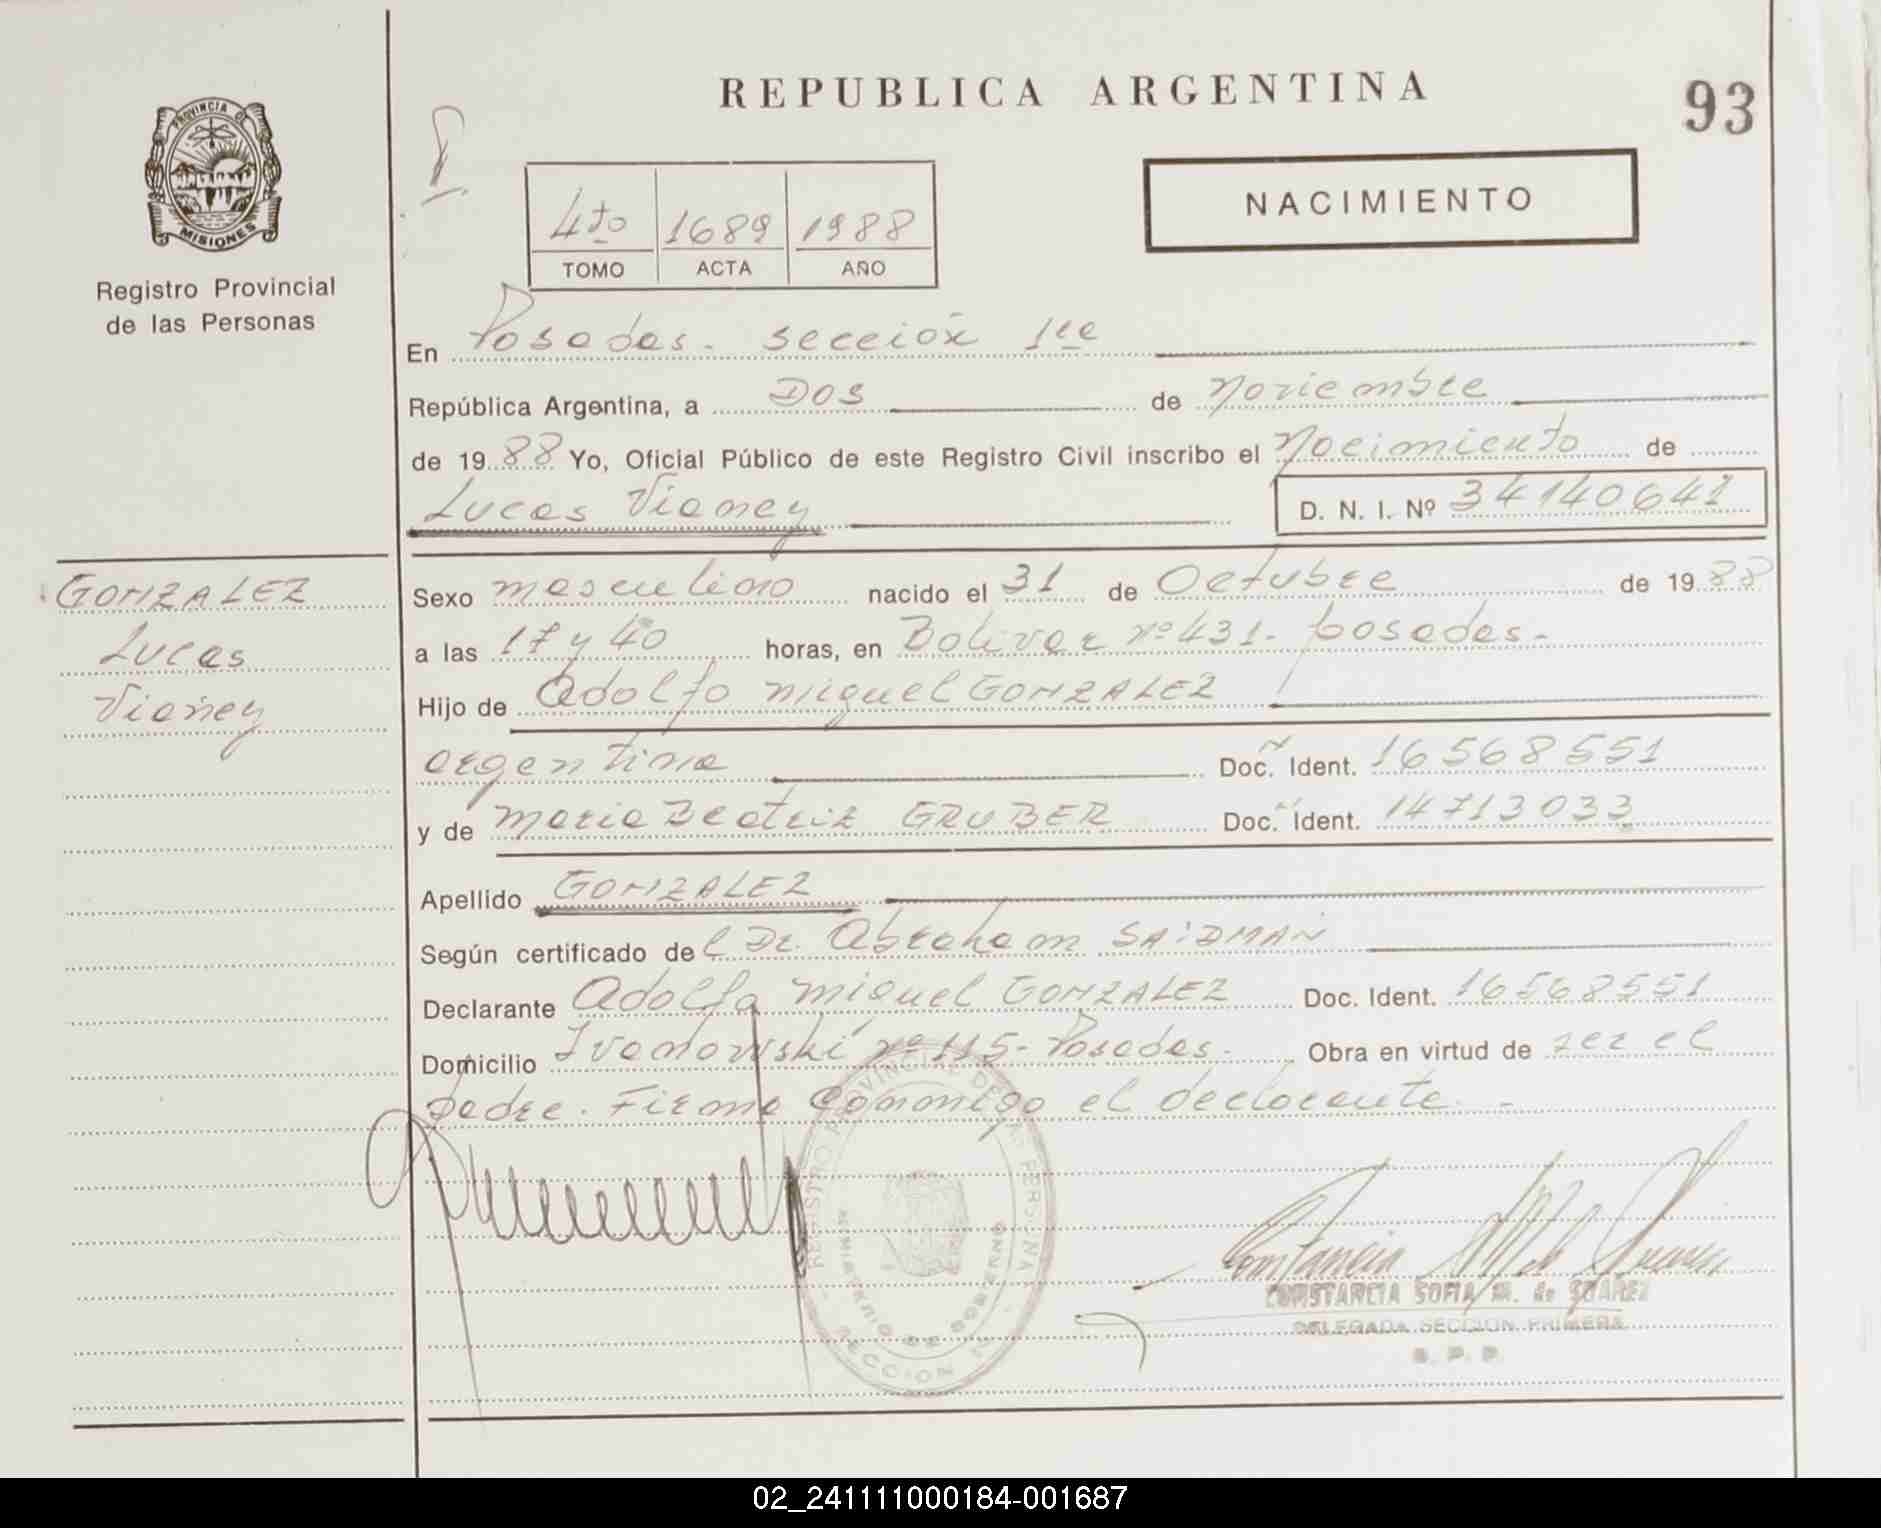 REPUBLICA ARGENTINA
93
PROVINCIA DE
MISIONES
Registro Provincial
de las Personas
4to 1689 1988
TOMO ACTA AÑO
NACIMIENTO
En Posadas. sección 1ra
República Argentina, a Dos de Noviembre
de 1988 Yo, Oficial Público de este Registro Civil inscribo el Nacimiento de
Lucas Vianey D. N. I. Nº 34140641
GONZALEZ
Lucas
Vianey
Sexo masculino nacido el 31 de Octubre de 1988
a las 17 y 40 horas, en Bolivar nº 431- posadas-
Hijo de Adolfo miguel GONZALEZ
argentina Doc. Ident. 16568551
y de maria Beatriz GRUBER Doc. Ident. 14713033
Apellido GONZALEZ
Según certificado del Dr. Abraham SAIDMAN
Declarante Adolfo miguel GONZALEZ Doc. Ident. 16568551
Domicilio Ivanowski nº 115- Posadas- Obra en virtud de ser el
padre. Firma conmigo el declarante.-
REGISTRO PROVINCIAL DE LAS PERSONAS
MINISTERIO DE GOBIERNO
SECCION
CONSTANCIA SOFIA M. de SUAREZ
DELEGADA SECCION PRIMERA
R. P. P.
02_241111000184-001687